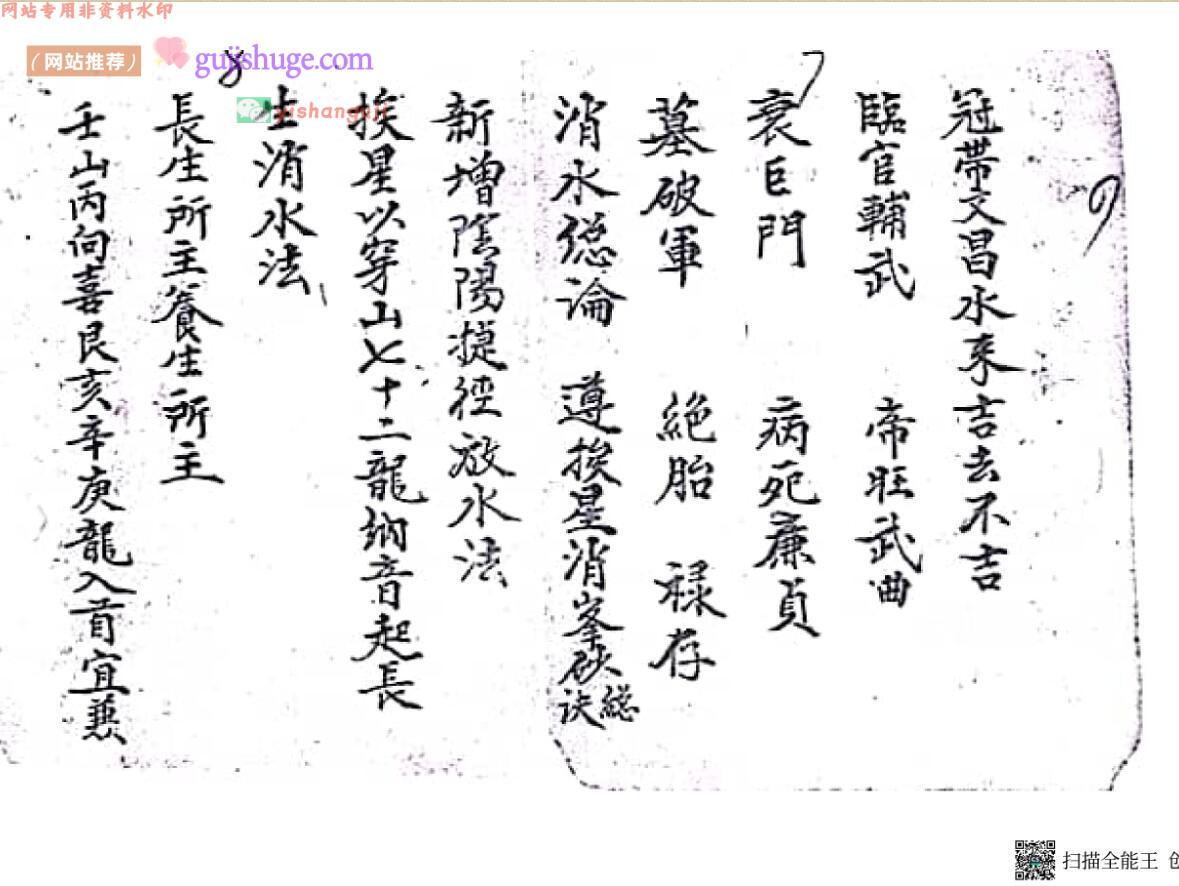 网站专用非资料水印
（网站推荐）
gujishuge.com
yishanguji
冠帶文昌水来吉去不吉
臨官輔武 帝旺武曲
衰巨門 病死廉貞
墓破軍 絶胎 禄存
消水総論 遵挨星消峯砂総訣
新增陰陽捷徑放水法
挨星以穿山七十二龍納音起長
生消水法
長生所主養生所主
壬山丙向喜艮亥辛庚龍入首宜兼
扫描全能王 创